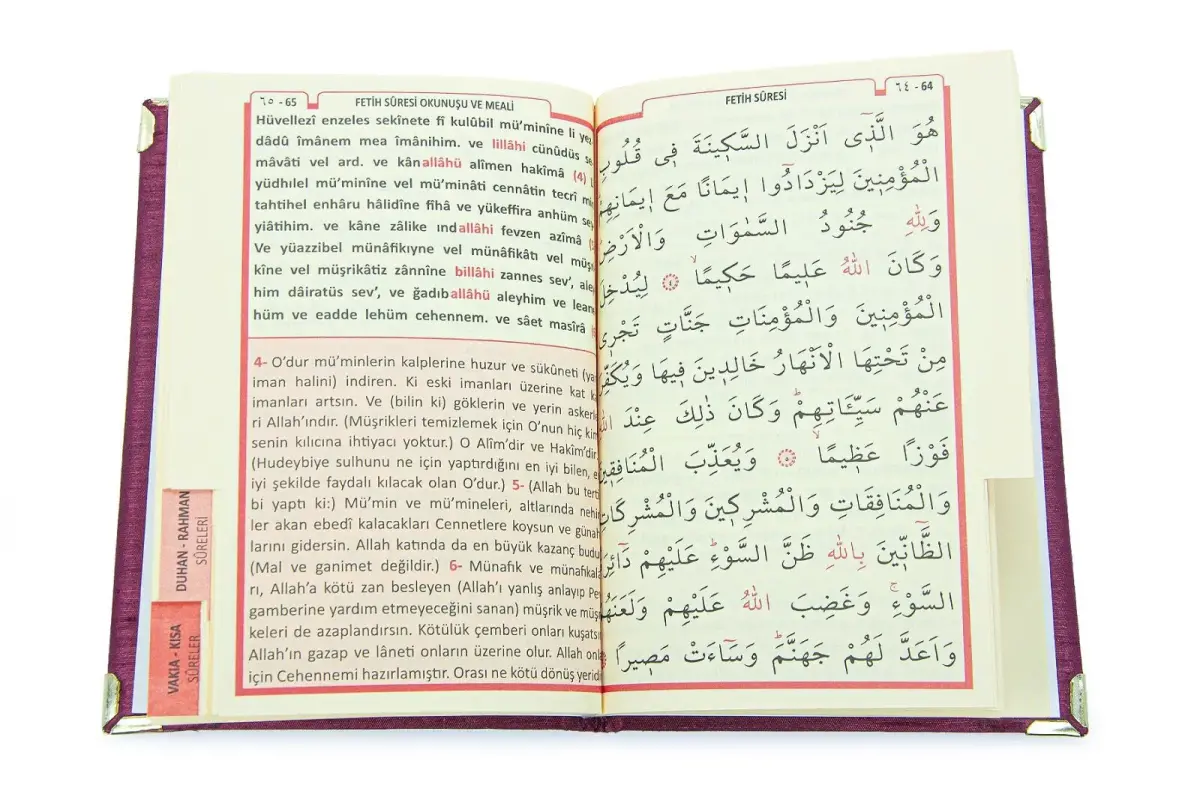 ٦٤ - 64
FETİH SÛRESİ
هُوَ الَّذ۪ٓي اَنْزَلَ السَّك۪ينَةَ ف۪ي قُلُوبِ
الْمُؤْمِن۪ينَ لِيَزْدَادُٓوا ا۪يمَانًا مَعَ ا۪يمَانِهِمْ
وَلِلّٰهِ جُنُودُ السَّمٰوَاتِ وَالْاَرْضِ
وَكَانَ اللّٰهُ عَل۪يمًا حَك۪يمًاۙ ﴿٤﴾ لِيُدْخِلَ
الْمُؤْمِن۪ينَ وَالْمُؤْمِنَاتِ جَنَّاتٍ تَجْر۪ي
مِنْ تَحْتِهَا الْاَنْهَارُ خَالِد۪ينَ ف۪يهَا وَيُكَفِّرَ
عَنْهُمْ سَيِّـَٔاتِهِمْۜ وَكَانَ ذٰلِكَ عِنْدَ اللّٰهِ
فَوْزًا عَظ۪يمًاۙ ﴿٥﴾ وَيُعَذِّبَ الْمُنَافِق۪ينَ
وَالْمُنَافِقَاتِ وَالْمُشْرِك۪ينَ وَالْمُشْرِكَاتِ
الظَّٓانّ۪ينَ بِاللّٰهِ ظَنَّ السَّوْءِۜ عَلَيْهِمْ دَٓائِرَةُ
السَّوْءِۚ وَغَضِبَ اللّٰهُ عَلَيْهِمْ وَلَعَنَهُمْ
وَاَعَدَّ لَهُمْ جَهَنَّمَۜ وَسَٓاءَتْ مَص۪يرًا
٦٥ - 65
FETİH SÛRESİ OKUNUŞU VE MEALİ
Hüvellezî enzeles sekînete fî kulûbil mü’minîne li yez
dâdû îmânem mea îmânihim. ve lillâhi cünûdüs se
mâvâti vel ard. ve kânallâhü alîmen hakîmâ (4)
yüdhılel mü’minîne vel mü’minâti cennâtin tecrî min
tahtihel enhâru hâlidîne fîhâ ve yükeffira anhüm sey
yiâtihim. ve kâne zâlike ındallâhi fevzen azîmâ
Ve yüazzibel münâfikıyne vel münâfikâti vel müş
kîne vel müşrikâtiz zânnîne billâhi zannes sev’, aley
him dâiratüs sev’, ve ğadıballâhü aleyhim ve lean
hüm ve eadde lehüm cehennem. ve sâet masîrâ
4- O’dur mü’minlerin kalplerine huzur ve sükûneti
iman halini) indiren. Ki eski imanları üzerine kat
imanları artsın. Ve (bilin ki) göklerin ve yerin askerle
ri Allah’ındır. (Müşrikleri temizlemek için O’nun hiç kim
senin kılıcına ihtiyacı yoktur.) O Alîm’dir ve Hakîm’dir.
(Hudeybiye sulhunu ne için yaptırdığını en iyi bilen,
iyi şekilde faydalı kılacak olan O’dur.) 5- (Allah bu terti
bi yaptı ki:) Mü’min ve mü’mineleri, altlarında nehir
ler akan ebedî kalacakları Cennetlere koysun ve günah
larını gidersin. Allah katında da en büyük kazanç budur
(Mal ve ganimet değildir.) 6- Münafık ve münafıkala
rı, Allah’a kötü zan besleyen (Allah’ı yanlış anlayıp Pey
gamberine yardım etmeyeceğini sanan) müşrik ve müşri
keleri de azaplandırsın. Kötülük çemberi onları kuşatsın
Allah’ın gazap ve lâneti onların üzerine olur. Allah onlar
için Cehennemi hazırlamıştır. Orası ne kötü dönüş yeridir
DUHAN - RAHMAN
SÛRELERİ
VAKIA - KISA
SÛRELER